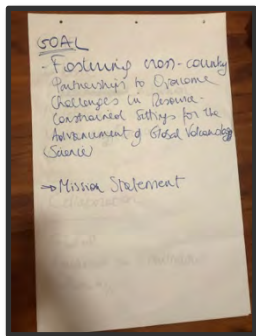 GOAL
- Fostering cross-country
Partnerships to Overcome
Challenges in Resource-
Constrained Settings for the
Advancement of Global Volcanology
(Science)
→ Mission Statement